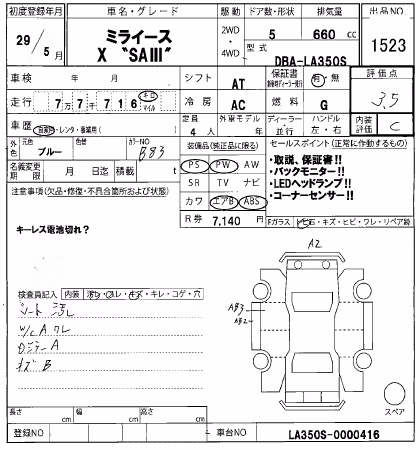 初度登録年月 車名・グレード 駆動 ドア数・形状 排気量 出品NO
29/5月 ミライース X "SAⅢ" 2WD・4WD 5 660cc 1523
型式 DBA-LA350S
車検 年 月 シフト AT 保証書 有・無 評価点 3.5
走行 7万7千716 キロ マイル 冷房 AC 燃料 G 内装評価 C
車歴 自家用・レンタ・事業用( ) 定員 4人 外車モデル 年 ディーラー 並行 ハンドル 左・右
外色 元色 ブルー 色替 カラーNO B83 装備品(純正品に限る) セールスポイント(正常に作動するもの)
名義変更期限 月 日迄 積載 t PS PW AW
注意事項(欠品・修復・不具合箇所および状態) SR TV ナビ
カワ エアB ABS
R券 7,140円
・取説、保証書!!
・バックモニター!!
・LEDヘッドランプ!!
・コーナーセンサー!!
Fガラス トビ石・キズ・ヒビ・ワレ・リペア跡
キーレス電池切れ?
A2
AB3
AB2
スペア
検査員記入 内装 汚れ・スレ・キズ・キレ・コゲ・穴
シート汚レ
W/C A ワレ
Dミラー A
キズ B
長さ cm 幅 cm 高さ cm
登録NO 車台NO LA350S-0000416